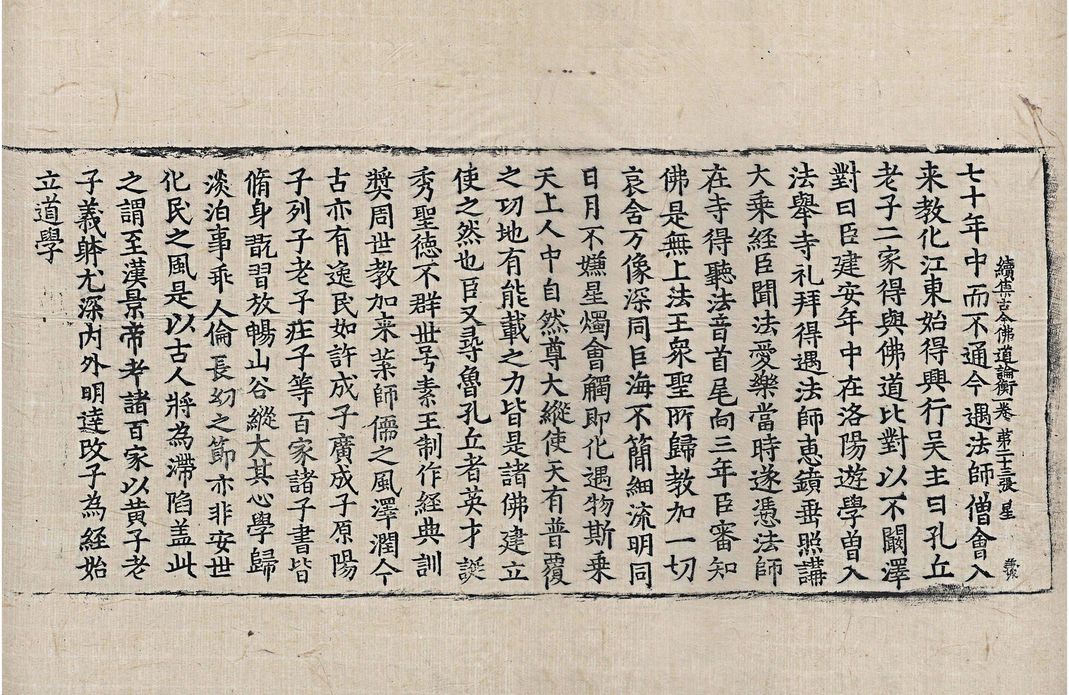 七十年中而不通今遇法師僧會入
續集古今佛道論衡卷 第二十三張 星
来教化江東始得興行吴主曰孔丘
老子二家得與佛道比對以不闞澤
對曰臣建安年中在洛陽遊學曽入
法舉寺礼拜得遇法師惠鏡垂照講
大乘經臣聞法愛樂當時遂憑法師
在寺得聽法音首尾向三年臣審知
佛是無上法王衆聖所歸教加一切
哀含万像深同巨海不簡細流明同
日月不嫌星燭會觸即化遇物斯乗
天上人中自然尊大縱使天有普覆
之功地有能載之力皆是諸佛建立
使之然也臣又尋魯孔丘者英才誕
秀聖德不群世号素王制作經典訓
奬周世教加来葉師儒之風澤潤今
古亦有逸民如許成子廣成子原陽
子列子老子莊子等百家諸子書皆
脩身翫習放暢山谷縱大其心學歸
淡泊事乖人倫長幼之節亦非安世
化民之風是以古人將為滯陷盖此
之謂至漢景帝考諸百家以黄子老
子義躰尤深内外明達改子為經始
立道學